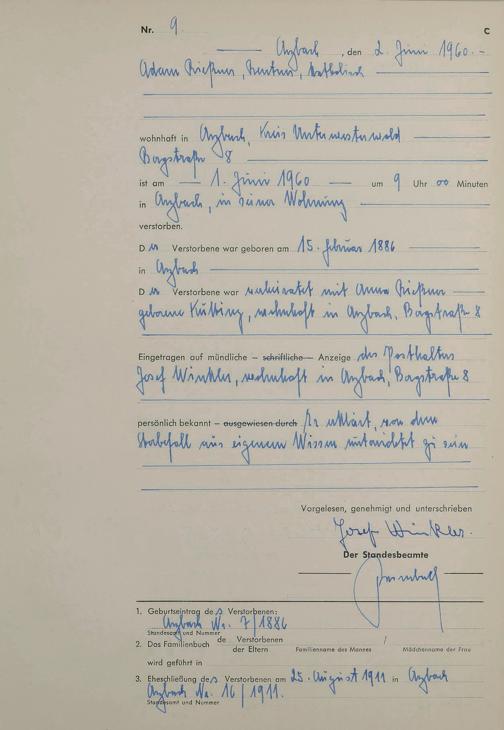 Nr. 9 C
Arzbach, den 2. Juni 1960.-
Adam Rießner, Rentner, katholisch
wohnhaft in Arzbach, Kreis Unterwesterwald
Bergstraße 8
ist am 1. Juni 1960 um 9 Uhr 00 Minuten
in Arzbach, in seiner Wohnung
verstorben.
Der Verstorbene war geboren am 15. Februar 1886
in Arzbach
Der Verstorbene war verheiratet mit Anna Rießner
geborene wohnhaft in Arzbach, Bergstraße 8
Eingetragen auf mündliche – schriftliche – Anzeige des Posthalters
Josef Winkler, wohnhaft in Arzbach, Bergstraße 8
persönlich bekannt – ausgewiesen durch Er erklärt, von dem
Sterbefall aus eigenem Wissen unterrichtet zu sein
Vorgelesen, genehmigt und unterschrieben
Josef Winkler.
Der Standesbeamte
1. Geburtseintrag des Verstorbenen:
Arzbach Nr. 7/1886
Standesamt und Nummer
2. Das Familienbuch de Verstorbenen / der Eltern /
Familienname des Mannes Mädchenname der Frau
wird geführt in
3. Eheschließung des Verstorbenen am 25. August 1911 in Arzbach
Arzbach Nr. 16/1911.
Standesamt und Nummer